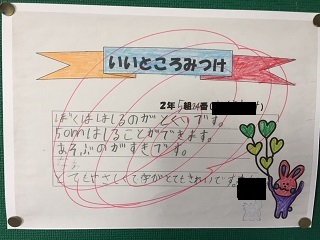 いいところみつけ
2年5組24番
ぼくははしるのがとくいです。
50mはしることができます。
あそぶのがすきです。
とてもやさしくて字がとてもきれいです。